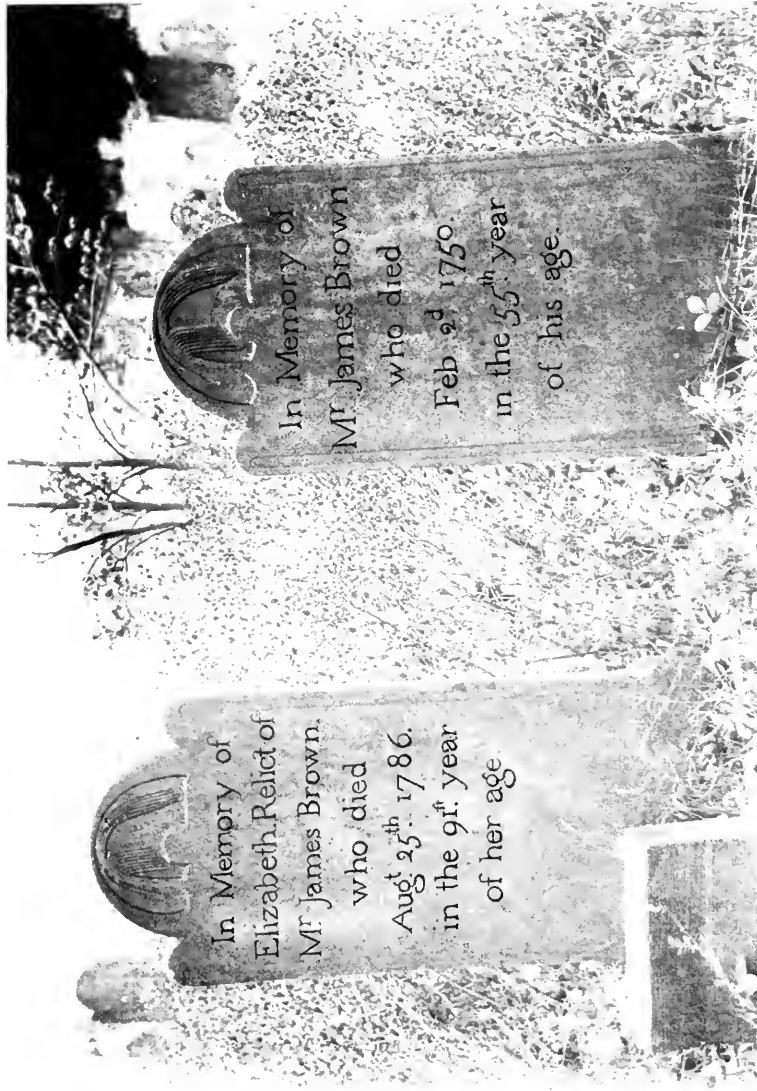 In Memory of
Elizabeth Relict of
Mr James Brown.
who died
Augt 25th 1786.
in the 91st year
of her age
In Memory of
Mr James Brown
who died
Feb 2d 1750.
in the 55th year
of his age.